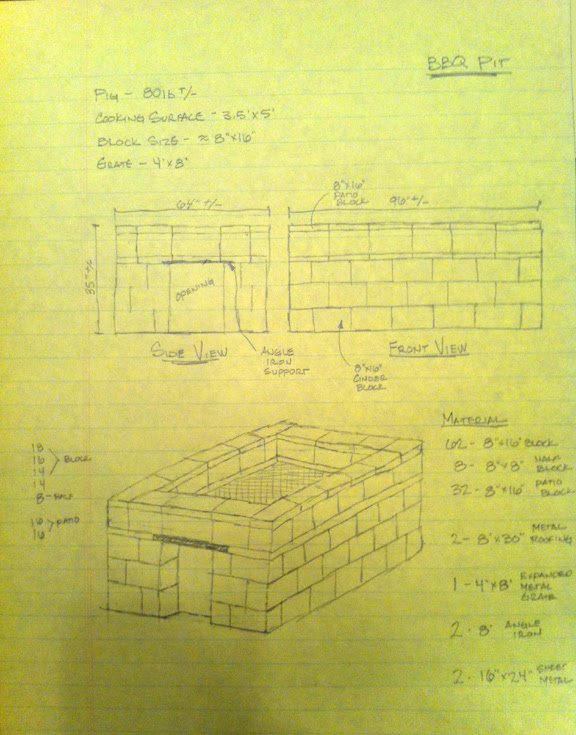 BBQ PIT
PIG - 80lb +/-
COOKING SURFACE - 3.5'x5'
BLOCK SIZE - ≈ 8"x16"
GRATE - 4'x8'
64" +/-
8"x16"
PATIO
BLOCK
96" +/-
35" +/-
OPENING
SIDE VIEW
ANGLE
IRON
SUPPORT
FRONT VIEW
8"x16"
CINDER
BLOCK
18
16
14
14
BLOCK
8 - HALF
16
16
PATIO
MATERIAL
62 - 8"x16" BLOCK
8 - 8"x8" HALF
BLOCK
32 - 8"x16" PATIO
BLOCK
2 - 8'x30" METAL
ROOFING
1 - 4'x8' EXPANDED
METAL
GRATE
2 - 8' ANGLE
IRON
2 - 16"x24" SHEET
METAL